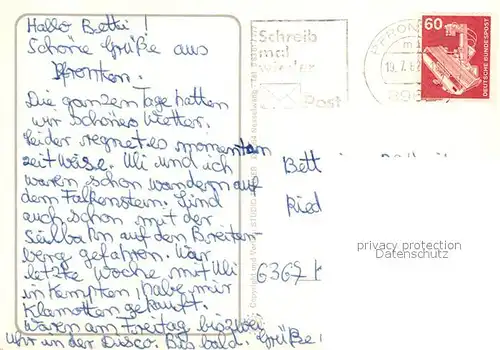 Hallo Betti!
Schöne Grüße aus
Pfronten.
Die ganzen Tage hatten
wir schönes Wetter.
Leider regnet es momentan
zeitweise. Uli und ich
waren schon wandern auf
dem Falkenstein. Sind
auch schon mit der
Seilbahn auf den Breiten-
berg gefahren. War
letzte Woche mit Uli
in Kempten, habe mir
Klamotten gekauft.
Waren am Freitag bis zwei
Uhr in der Disco. Bis bald. Grüße!
Schreib
mal
wieder
Post
60
DEUTSCHE BUNDESPOST
Bett
Ried
6367
privacy protection
Datenschutz